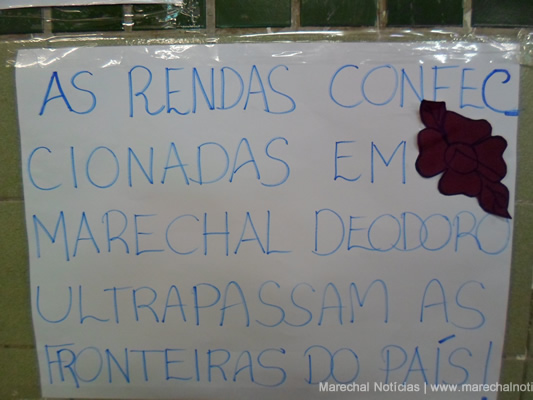 AS RENDAS CONFEC
CIONADAS EM
MARECHAL DEODORO
ULTRAPASSAM AS
FRONTEIRAS DO PAÍS!
Marechal Notícias | www.marechalnoti